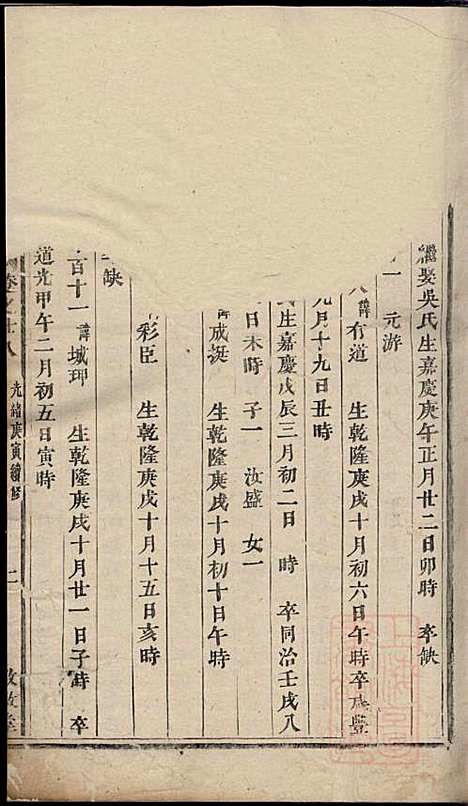 繼娶吳氏生嘉慶庚午正月廿二日卯時 卒缺
一 元游
諱有道 生乾隆庚戌十月初六日午時卒咸豐
九月十九日丑時
氏生嘉慶戊辰三月初二日 時 卒同治壬戌八
日未時 子一 汝盛 女一
諱成誕 生乾隆庚戌十月初十日午時
彩臣 生乾隆庚戌十月十五日亥時
缺
百十一 諱城玾 生乾隆庚戌十月廿一日子時 卒
道光甲午二月初五日寅時
卷之廿八 光緒庚寅續修 二 敦敘堂